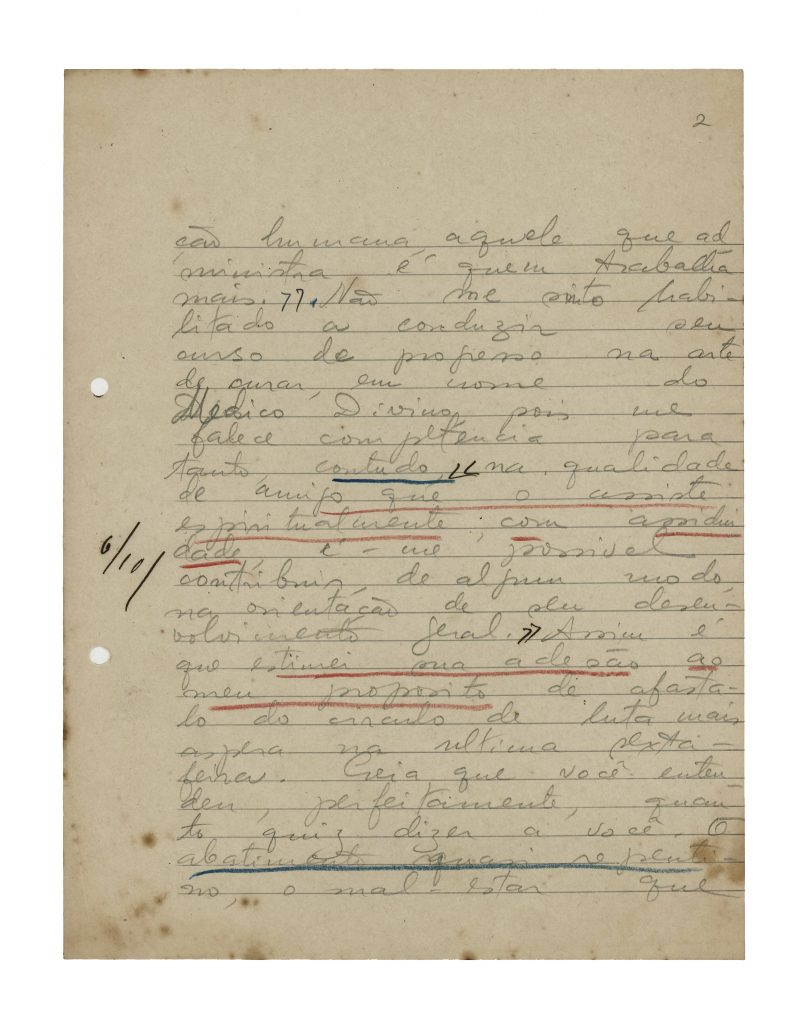 2
ção humana, aquele que ad
ministra é quem trabalha
mais. 77. Não me sinto habi-
litado a conduzir seu
curso de progresso na arte
de curar, em nome do
Médico Divino, pois me
falece competencia para
tanto, contudo, na qualidade
de amigo que o assiste
espiritualmente, com assidui
dade, é-me possivel
6/10/
contribuir, de algum modo
na orientação de seu desen-
volvimento geral. 77 Assim é
que estimei sua adesão ao
meu proposito de afasta-
lo do circulo de luta mais
aspera na ultima sexta-
feira. Creia que você enten
deu, perfeitamente, quan-
to quiz dizer a você. O
abatimento quasi repenti-
no, o mal-estar que